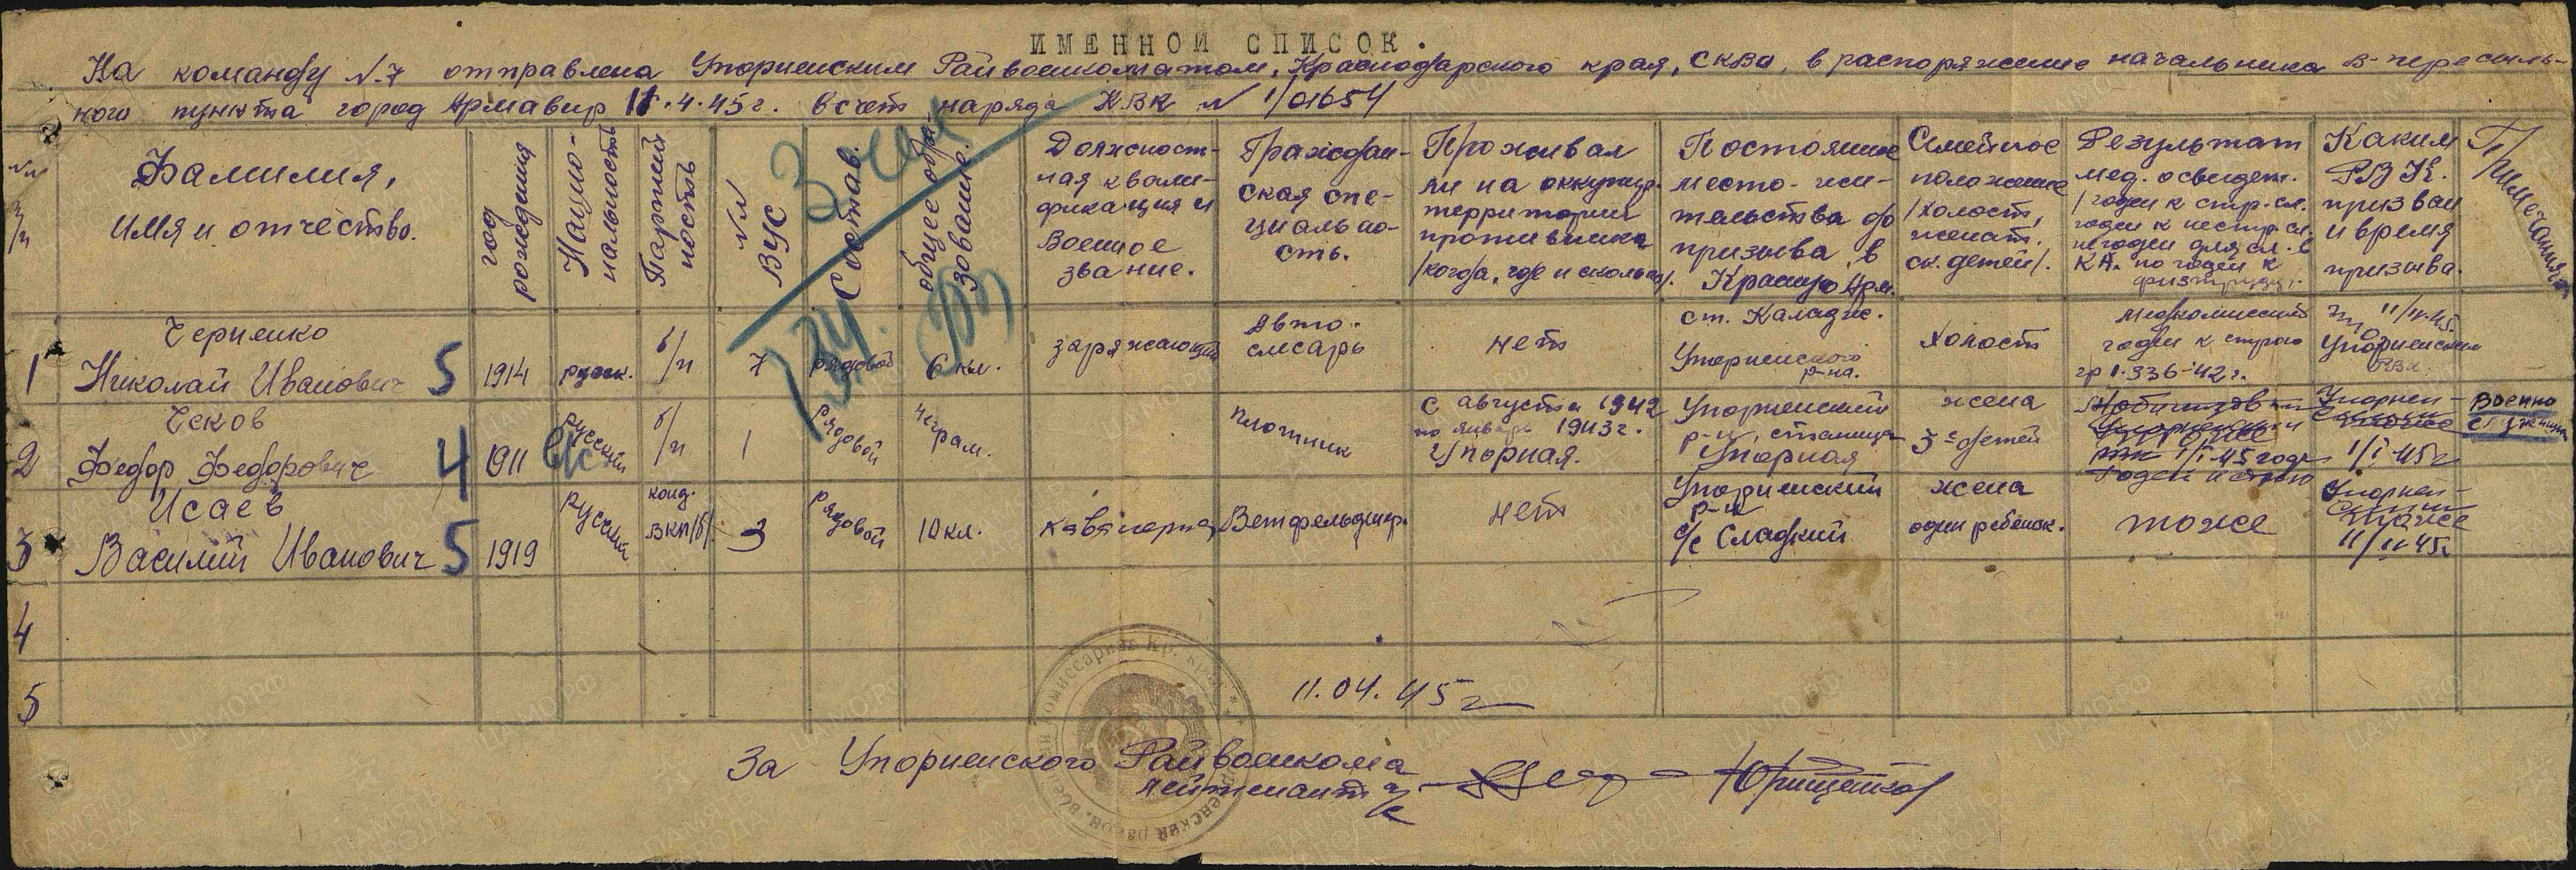 ИМЕННОЙ СПИСОК.
На команду №7 отправлена Упорненским Райвоенкоматом, Краснодарского края, СКВО, в распоряжение начальника в-пересыль-
ного пункта город Армавир 11.4.45г. в счет наряда КВК № 1/01654
№№ п/п
Фамилия,
имя и отчество.
год рождения
Нацио-
нальность
Партий
ность
№№
ВУС
Состав.
общее обра-
зование.
Должност-
ная квали-
фикация и
Военное
звание.
Граждан-
ская спе-
циально-
сть.
Проживал
ли на оккупир.
территории
противника
/когда, где и сколько/.
Постоянное
место-жи-
тельства до
призыва в
Красную Арм.
Семейное
положение
/холост,
женат.
ск. детей/.
Результат
мед. освидет.
/годен к стр. сл.
годен к нестр. сл.
не годен для сл. в
КА. но годен к
физ. труду/.
Каким
РВК.
призван
и время
призыва.
Примечания
1
Черненко
Николай Иванович
5
1914
русск.
б/п
7
рядовой
6 кл.
заряжающий
Авто-
слесарь
нет
ст. Каладж.
Упорненского
р-на.
Холост
Медкомиссией
годен к строю
гр 1. 336-42г.
11/IV-45.
Упорненским
РВК.
2
Чсков
Федор Федорович
4
1911
русский
б/п
1
Рядовой
Неграм.
Плотник
с августа 1942
по январь 1943г.
Упорная.
Упорненский
р-н, станица
Упорная
жена
3е детей
1/I-45 года
Годен к строю
Упорнен-
1/I-45г
Военно
служащ
3
Исаев
Василий Иванович
5
1919
Русский
канд.
ВКП/б/.
3
Рядовой
10 кл.
Кавалерист
Ветфельдшер.
нет
Упорненский
р-н
с/с Сладкий
жена
один ребенок.
тоже
Упорнен-
ским
11/IV 45г
4
5
11.04.45г
За Упорненского Райвоенкома
лейтенант а/с